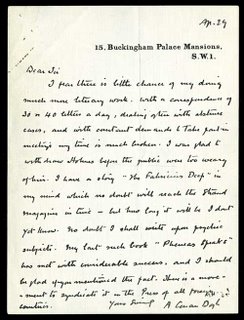 Ap. 29
15, Buckingham Palace Mansions,
S.W.1.
Dear Sir
I fear there is little chance of my doing
much more literary work. With a correspondence of
30 or 40 letters a day, dealing often with abstruse
cases, and with constant demands to take part in
meetings my time is much broken. I was glad to
withdraw Holmes before the public were too weary
of him. I have a story "The Deep" in
my mind which no doubt will reach the Strand
Magazine in time - but how long it will be I don't
yet know. No doubt I shall write upon psychic
subjects. My last such book "Pheneas Speaks"
has met with considerable success, and I should
be glad if you mentioned the fact. There is a move-
-ment to syndicate it in the Press of all foreign
countries.
Yours sincerely
A Conan Doyle